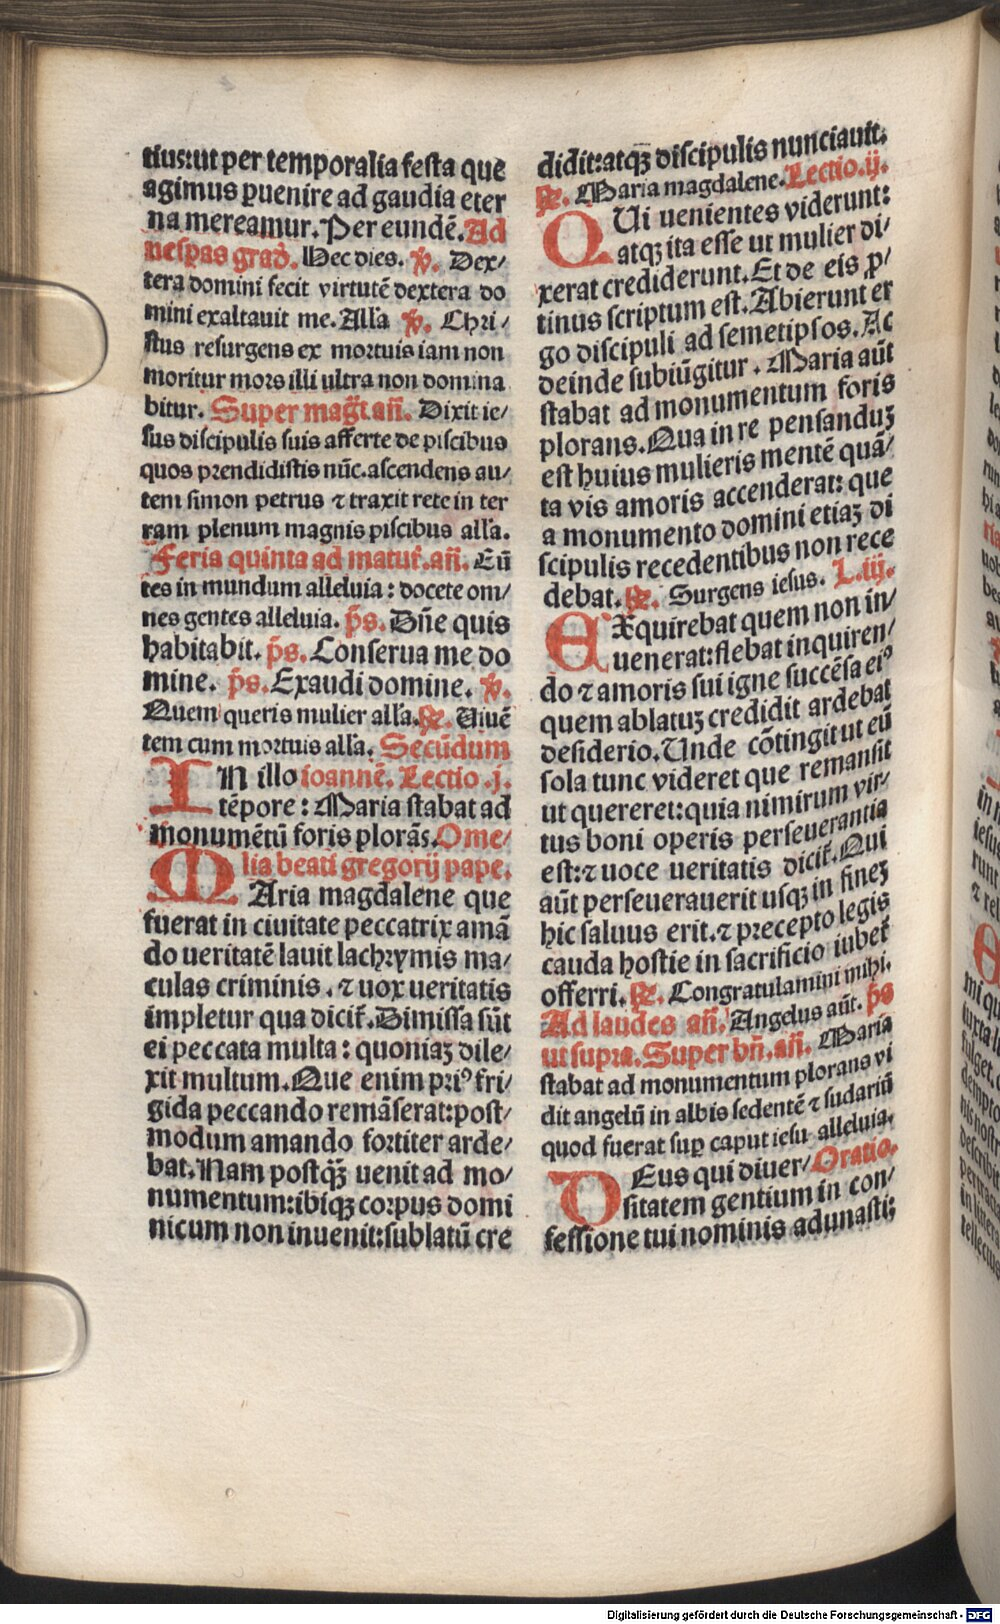 tius:ut per temporalia festa que
agimus ꝑuenire ad gaudia eter
na mereamur. Per eundē. Ad
uesꝑas grad̄. Hec dies. ℣. Dex/
tera domini fecit virtutē dextera do
mini exaltauit me. Alla ℣. Chri/
stus resurgens ex mortuis iam non
moritur mors illi ultra non domina
bitur. Super mag̃t.añ. Dixit ie/
sus discipulis suis afferte de piscibus
quos prendidistis nūc. ascendens au/
tem simon petrus ⁊ traxit rete in ter
ram plenum magnis piscibus alla.
Feria quinta ad matut̃.añ. Eū
tes in mundum alleluia: docete om/
nes gentes alleluia. p̄s. Dñe quis
habitabit. p̄s. Conserua me do
mine. p̄s. Exaudi domine. ℣.
Quem queris mulier alla. ℟. Uiuē
tem cum mortuis alla. Secūdum
IN illo ioannē. Lectio .j.
tēpore: Maria stabat ad
monumētū foris plorās. Ome/
lia beati gregorij pape.
MAria magdalene que
fuerat in ciuitate peccatrix amā
do ueritatē lauit lachrymis ma/
culas criminis. ⁊ uox ueritatis
impletur qua dicit̃. Dimissa sūt
ei peccata multa: quoniaꝫ dile/
xit multum. Que enim priꝰ fri/
gida peccando remāserat: post/
modum amando fortiter arde/
bat. Nam postqꝫ̃ uenit ad mo/
numentum: ibiqꝫ corpus domi
nicum non inuenit: sublatū cre
didit: atqꝫ discipulis nunciauit.
℟. Maria magdalene. Lectio.ij.
QUi uenientes viderunt:
atqꝫ ita esse ut mulier di/
xerat crediderunt. Et de eis ꝓ/
tinus scriptum est. Abierunt er
go discipuli ad semetipsos. Ac
deinde subiūgitur. Maria aūt
stabat ad monumentum foris
plorans. Qua in re pensanduꝫ
est huius mulieris mentē quā/
ta vis amoris accenderat: que
a monumento domini etiaꝫ di
scipulis recedentibus non rece
debat. ℟. Surgens iesus. L.iij.
EXquirebat quem non in/
uenerat: flebat inquiren/
do ⁊ amoris sui igne succēsa eiꝰ
quem ablatuꝫ credidit ardebat
desiderio. Unde cōtingit ut eū
sola tunc videret que remansit
ut quereret: quia nimirum vir/
tus boni operis perseuerantia
est: ⁊ uoce ueritatis dicit̃. Qui
aūt perseuerauerit usqꝫ in fineꝫ
hic saluus erit. ⁊ precepto legis
cauda hostie in sacrificio iubet̃
offerri. ℟. Congratulamini mihi.
Ad laudes añ. Angelus aūt. p̄s
ut supra. Super bñ.añ. Maria
stabat ad monumentum plorans vi
dit angelū in albis sedentē ⁊ sudariū
quod fuerat suꝑ caput iesu alleluia.
DEus qui diuer/ Oratio.
sitatem gentium in con/
fessione tui nominis adunasti:
Digitalisierung gefördert durch die Deutsche Forschungsgemeinschaft - DFG